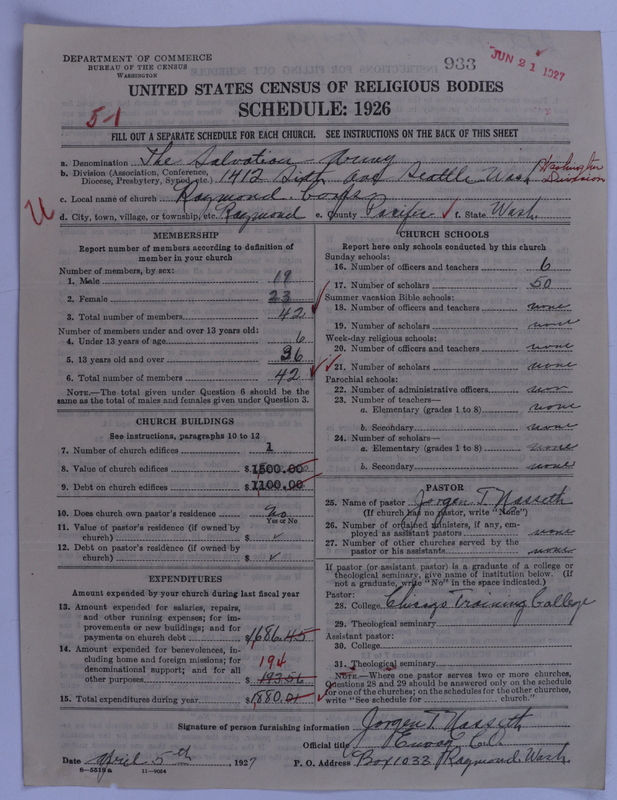 933
JUN 21 1927
DEPARTMENT OF COMMERCE
BUREAU OF THE CENSUS
WASHINGTON
UNITED STATES CENSUS OF RELIGIOUS BODIES
SCHEDULE: 1926
51
FILL OUT A SEPARATE SCHEDULE FOR EACH CHURCH. SEE INSTRUCTIONS ON THE BACK OF THIS SHEET
a. Denomination The Salvation Army
b. Division (Association, Conference, Diocese, Presbytery, Synod, etc.) 1412 Sixth ave Seattle Wash Washington Division
c. Local name of church Raymond Corps
U
d. City, town, village, or township, etc. Raymond e. County Pacific f. State Wash.
MEMBERSHIP
Report number of members according to definition of
member in your church
Number of members, by sex:
1. Male 19
2. Female 23
3. Total number of members 42
Number of members under and over 13 years old:
4. Under 13 years of age 6
5. 13 years old and over 36
6. Total number of members 42
NOTE.—The total given under Question 6 should be the
same as the total of males and females given under Question 3.
CHURCH BUILDINGS
See instructions, paragraphs 10 to 12
7. Number of church edifices 1
8. Value of church edifices $1500.00
9. Debt on church edifices $1100.00
10. Does church own pastor's residence? No
Yes or No
11. Value of pastor's residence (if owned by
church) $ ✓
12. Debt on pastor's residence (if owned by
church) $ ✓
EXPENDITURES
Amount expended by your church during last fiscal year
13. Amount expended for salaries, repairs,
and other running expenses; for im-
provements or new buildings; and for
payments on church debt $1686.45
14. Amount expended for benevolences, in-
cluding home and foreign missions; for
denominational support; and for all
other purposes $193.56
194
15. Total expenditures during year $1880.01
CHURCH SCHOOLS
Report here only schools conducted by this church
Sunday schools:
16. Number of officers and teachers 6
17. Number of scholars 50
Summer vacation Bible schools:
18. Number of officers and teachers none
19. Number of scholars none
Week-day religious schools:
20. Number of officers and teachers none
21. Number of scholars none
Parochial schools:
22. Number of administrative officers non
23. Number of teachers—
a. Elementary (grades 1 to 8) none
b. Secondary none
24. Number of scholars—
a. Elementary (grades 1 to 8) none
b. Secondary none
PASTOR
25. Name of pastor Jorgen T. Nasseth
(If church has no pastor, write "None")
26. Number of ordained ministers, if any, em-
ployed as assistant pastors none
27. Number of other churches served by the
pastor or his assistants none
If pastor (or assistant pastor) is a graduate of a college or
theological seminary, give name of institution below. (If
not a graduate, write "No" in the space indicated.)
Pastor:
28. College Chicago Training College
29. Theological seminary
Assistant pastor:
30. College
31. Theological seminary
NOTE.—Where one pastor serves two or more churches,
Questions 28 and 29 should be answered only on the schedule
for one of the churches; on the schedules for the other churches,
write "See schedule for church."
Signature of person furnishing information Jorgen T. Nasseth
Official title Envoy C.O.
Date April 5th, 1927 P. O. Address Box 1033 Raymond. Wash.
8—5519a 11—9054